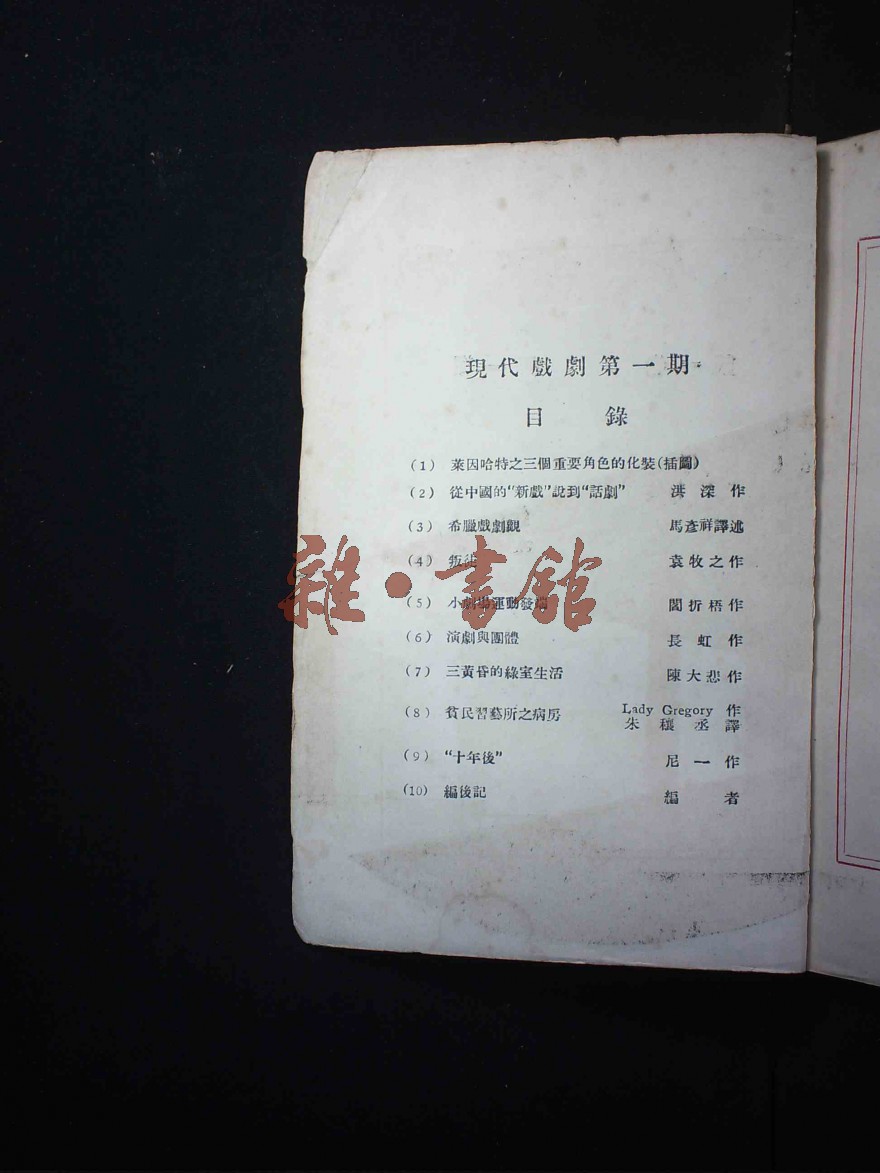 現代戲劇第一期
目錄
(1) 萊因哈特之三個重要角色的化裝(插圖)
(2) 從中國的“新戲”說到“話劇” 洪深作
(3) 希臘戲劇觀 馬彥祥譯述
(4) 叛徒 袁牧之作
(5) 小劇場運動發端 閻折梧作
(6) 演劇與團體 長虹作
(7) 三黃昏的綠室生活 陳大悲作
(8) 貧民習藝所之病房 Lady Gregory 作
朱穰丞譯
(9) “十年後” 尼一作
(10) 編後記 編者
雜·書館